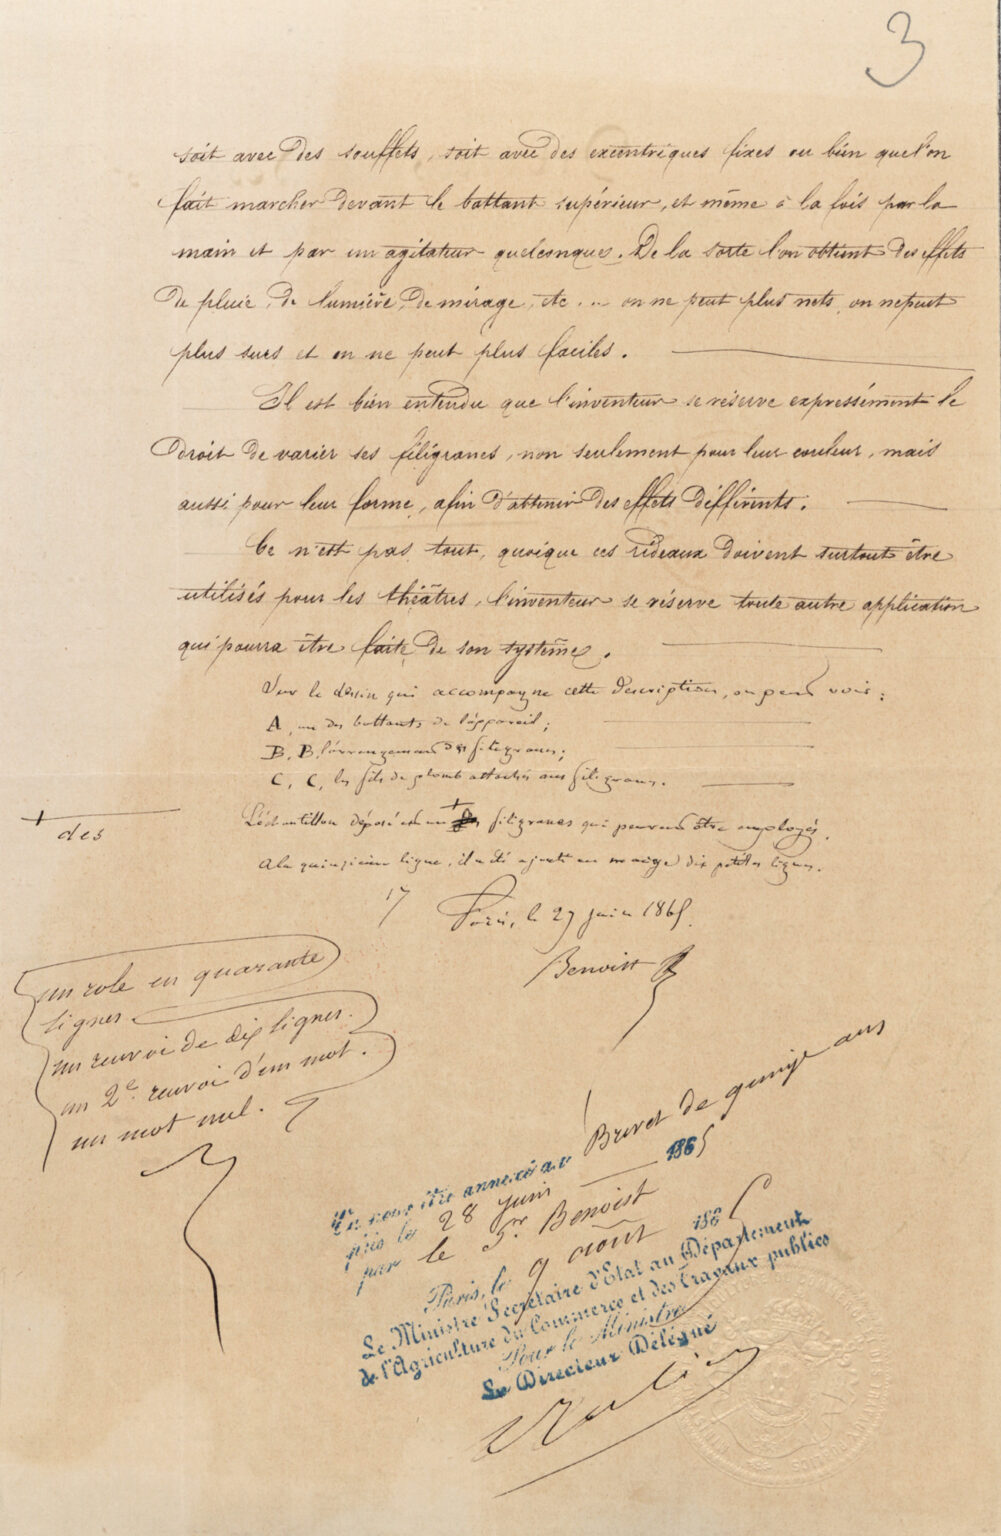 3
soit avec des soufflets, soit avec des excentriques fixes ou bien que l'on
fait marcher devant le battant supérieur, et même à la fois par la
main et par un agitateur quelconque. De la sorte l'on obtient des effets
de pluie, de lumière, de mirage, etc... on ne peut plus nets, on ne peut
plus surs et on ne peut plus faciles.
Il est bien entendu que l'inventeur se réserve expressément le
droit de varier ses filigranes, non seulement pour leur couleur, mais
aussi pour leur forme, afin d'obtenir des effets différents.
Ce n'est pas tout, quoique ces rideaux doivent surtout être
utilisés pour les théâtres, l'inventeur se réserve toute autre application
qui pourra être faite de son système.
Sur le dessin qui accompagne cette description, on peut voir:
A, un des battants de l'appareil;
B, B, l'arrangement des filigranes;
C, C, les fils de plomb attachés aux filigranes.
+
des
L'échantillon déposé est un + filigranes qui peuvent être employés.
A la quinzième ligne, il a été ajouté en marge dix petites lignes.
17
Paris, le 27 juin 1865.
Benoist
un role en quarante
lignes.
un renvoi de dix lignes.
un 2e. renvoi d'un mot.
un mot nul.
Vu pour être annexé au Brevet de quinze ans
pris le 28 juin 1865
par le Sr Benoist
Paris, le 9 août 1865
Le Ministre Secrétaire d'Etat au Département
de l'Agriculture du Commerce et des Travaux publics
Pour le Ministre
Le Directeur Délégué